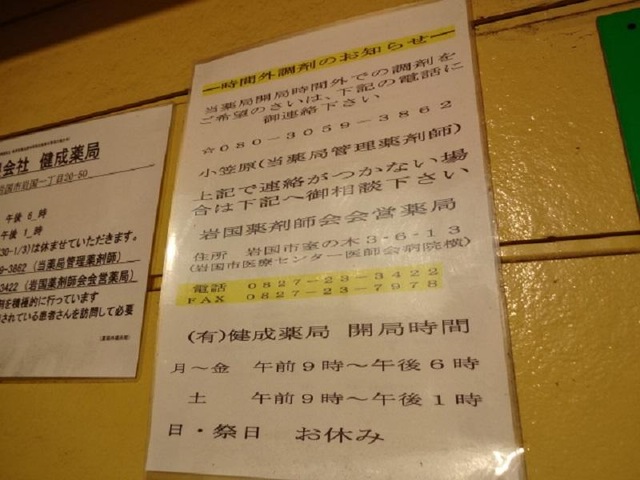 会社 健成薬局
岩国市岩国一丁目20-50
午後 6 時
午後 1 時
30-1/3)は休ませていただきます。
9-3862 (当薬局管理薬剤師)
3422 (岩国薬剤師会会営薬局)
剤を積極的に行っています
されている患者さんを訪問して必要
ー時間外調剤のお知らせー
当薬局開局時間外での調剤を
ご希望のさいは、下記の電話に
御連絡下さい
☆080-3059-3862
小笠原(当薬局管理薬剤師)
上記で連絡がつかない場
合は下記へ御相談下さい
岩国薬剤師会会営薬局
住所 岩国市室の木3-6-13
(岩国市医療センター医師会病院横)
電話 0827-23-3422
FAX 0827-23-7978
(有)健成薬局 開局時間
月～金 午前9時～午後6時
土 午前9時～午後1時
日・祭日 お休み